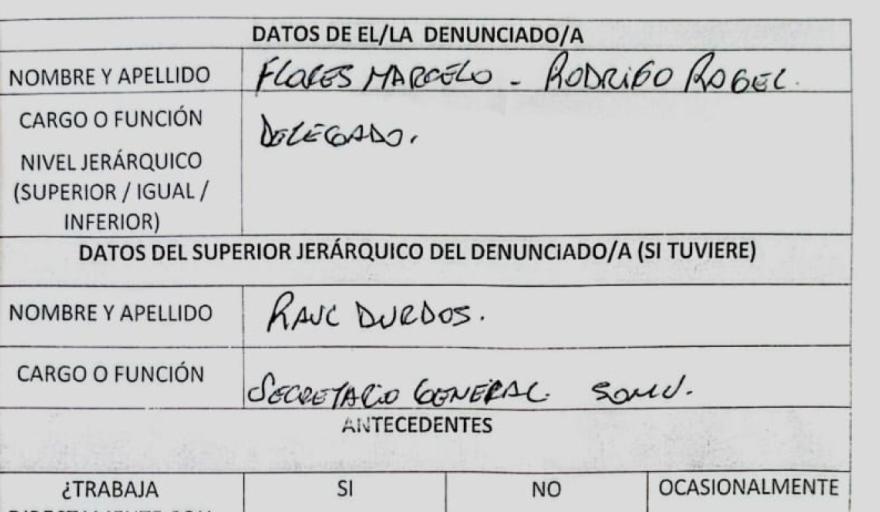 DATOS DE EL/LA DENUNCIADO/A
NOMBRE Y APELLIDO FLORES MARCELO - RODRIGO ROGEL.
CARGO O FUNCIÓN DELEGADO.
NIVEL JERÁRQUICO
(SUPERIOR / IGUAL /
INFERIOR)
DATOS DEL SUPERIOR JERÁRQUICO DEL DENUNCIADO/A (SI TUVIERE)
NOMBRE Y APELLIDO RAUL DURDOS.
CARGO O FUNCIÓN SECRETARIO GENERAL SOMU.
ANTECEDENTES
¿TRABAJA SI NO OCASIONALMENTE
DIRECTAMENTE CON